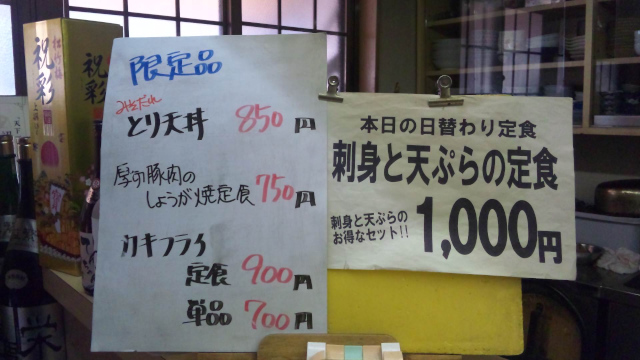 限定品
みそだれ
とり天丼 850円
厚切豚肉の
しょうが焼定食 750円
カキフライ
定食 900円
単品 700円
本日の日替わり定食
刺身と天ぷらの定食
刺身と天ぷらの
お得なセット!!
1,000円
祝彩
松竹梅
祝彩
栄